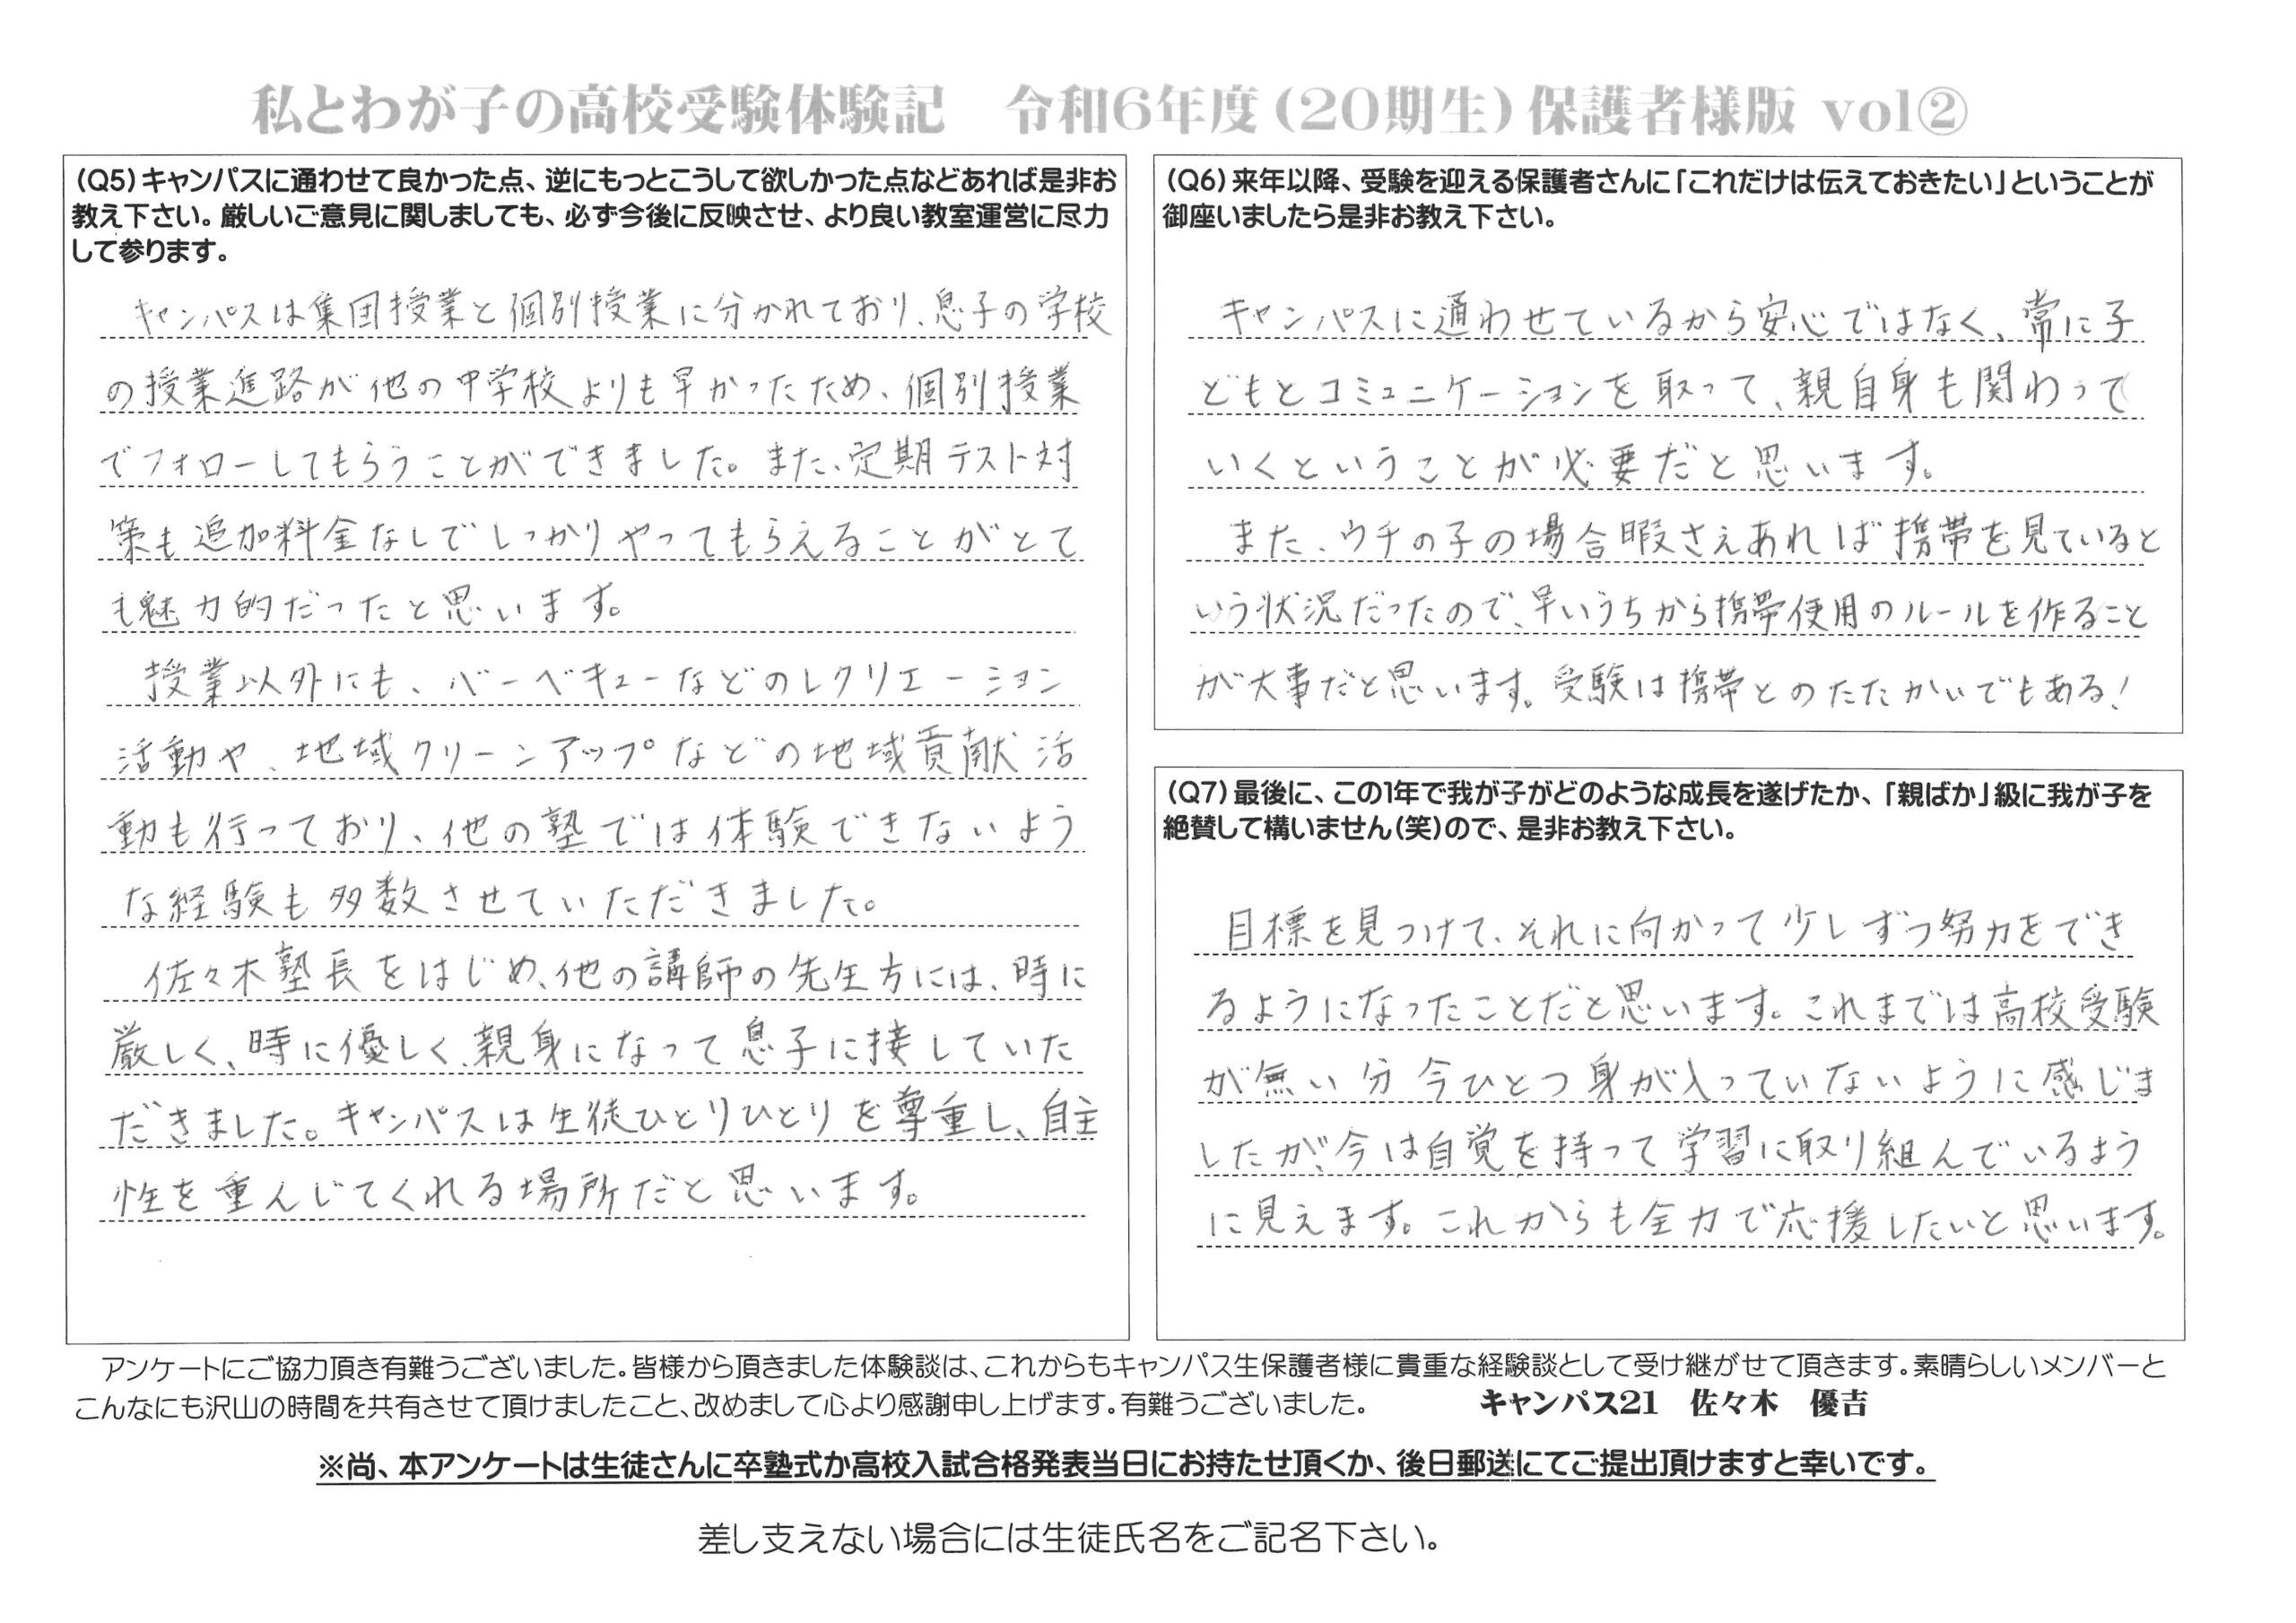 私とわが子の高校受験体験記　令和6年度(20期生)保護者様版 vol②
(Q5)キャンパスに通わせて良かった点、逆にもっとこうして欲しかった点などあれば是非お
教え下さい。厳しいご意見に関しましても、必ず今後に反映させ、より良い教室運営に尽力
して参ります。
キャンパスは集団授業と個別授業に分かれており、息子の学校
の授業進路が他の中学校よりも早かったため、個別授業
でフォローしてもらうことができました。また、定期テスト対
策も追加料金なしでしっかりやってもらえることがとて
も魅力的だったと思います。
授業以外にも、バーベキューなどのレクリエーション
活動や、地域クリーンアップなどの地域貢献活
動も行っており、他の塾では体験できないよう
な経験も多数させていただきました。
佐々木塾長をはじめ、他の講師の先生方には、時に
厳しく、時に優しく、親身になって息子に接していた
だきました。キャンパスは生徒ひとりひとりを尊重し、自主
性を重んじてくれる場所だと思います。
(Q6)来年以降、受験を迎える保護者さんに「これだけは伝えておきたい」ということが
御座いましたら是非お教え下さい。
キャンパスに通わせているから安心ではなく、常に子
どもとコミュニケーションを取って、親自身も関わって
いくということが必要だと思います。
また、ウチの子の場合暇さえあれば携帯を見ていると
いう状況だったので、早いうちから携帯使用のルールを作ること
が大事だと思います。受験は携帯とのたたかいでもある!
(Q7)最後に、この1年で我が子がどのような成長を遂げたか、「親ばか」級に我が子を
絶賛して構いません(笑)ので、是非お教え下さい。
目標を見つけて、それに向かって少しずつ努力をでき
るようになったことだと思います。これまでは高校受験
が無い分今ひとつ身が入っていないように感じま
したが、今は自覚を持って学習に取り組んでいるよう
に見えます。これからも全力で応援したいと思います。
アンケートにご協力頂き有難うございました。皆様から頂きました体験談は、これからもキャンパス生保護者様に貴重な経験談として受け継がせて頂きます。素晴らしいメンバーと
こんなにも沢山の時間を共有させて頂けましたこと、改めまして心より感謝申し上げます。有難うございました。　キャンパス21　佐々木　優吉
※尚、本アンケートは生徒さんに卒塾式か高校入試合格発表当日にお持たせ頂くか、後日郵送にてご提出頂けますと幸いです。
差し支えない場合には生徒氏名をご記名下さい。